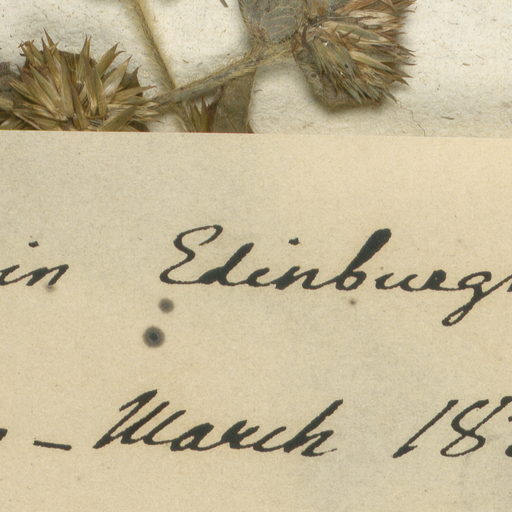 in Edinburg
- March 18